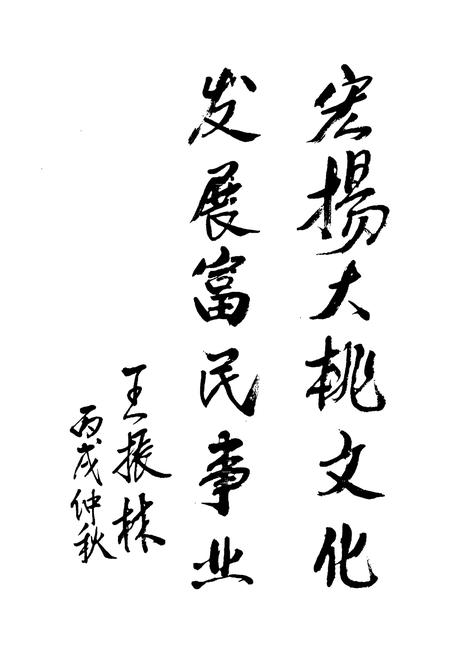 宏揚大桃文化
发展富民事业
王振林
丙戌仲秋